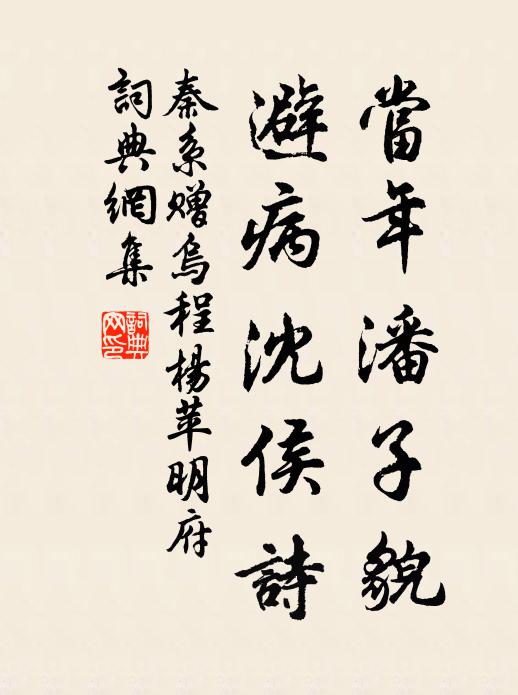 當年潘子貌
避病沈侯詩
秦系贈烏程楊苹明府
詞典網集
詞典網印